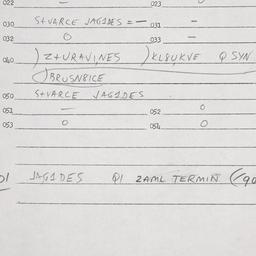 022 023
030 S+VARCE JAGODES = - 031 -
032 O 033 -
040 ) Z+URAVINES ) KLBUKVE Q SYN
) BRUSNBICE
050 S+VARCE JAGODES
051 - 052 O
053 O 054 O
01 JAGODES Q1 ZAML TERMIN